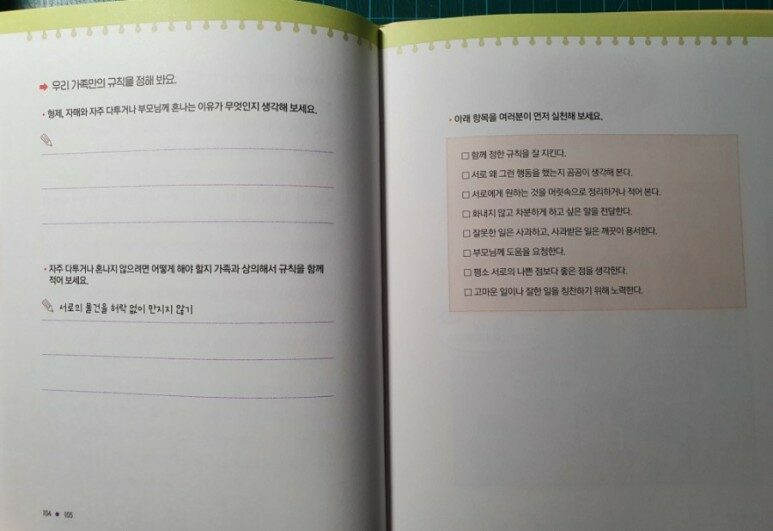 ➡ 우리 가족만의 규칙을 정해 봐요.
• 형제, 자매와 자주 다투거나 부모님께 혼나는 이유가 무엇인지 생각해 보세요.
• 자주 다투거나 혼나지 않으려면 어떻게 해야 할지 가족과 상의해서 규칙을 함께
적어 보세요.
서로의 물건을 허락 없이 만지지 않기
104 • 105
• 아래 항목을 여러분이 먼저 실천해 보세요.
□ 함께 정한 규칙을 잘 지킨다.
□ 서로 왜 그런 행동을 했는지 곰곰이 생각해 본다.
□ 서로에게 원하는 것을 머릿속으로 정리하거나 적어 본다.
□ 화내지 않고 차분하게 하고 싶은 말을 전달한다.
□ 잘못한 일은 사과하고, 사과받은 일은 깨끗이 용서한다.
□ 부모님께 도움을 요청한다.
□ 평소 서로의 나쁜 점보다 좋은 점을 생각한다.
□ 고마운 일이나 잘한 일을 칭찬하기 위해 노력한다.